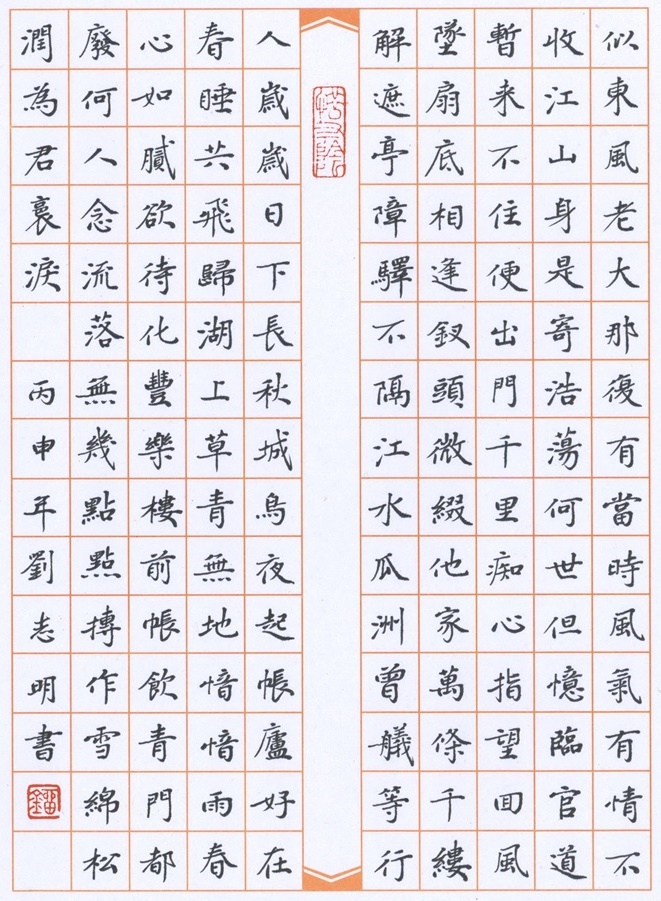 似東風老大那復有當時風氣有情不
收江山身是寄浩蕩何世但憶臨官道
暫来不住便出門千里痴心指望回風
墜扇底相逢釵頭微綴他家萬條千縷
解遮亭障驛不隔江水瓜洲曾艤等行
人歲歲日下長秋城烏夜起帳廬好在
春睡共飛歸湖上草青無地愔愔雨春
心如膩欲待化豐樂樓前帳飲青門都
廢何人念流落無幾點點摶作雪綿松
潤為君裛淚 丙申年劉志明書